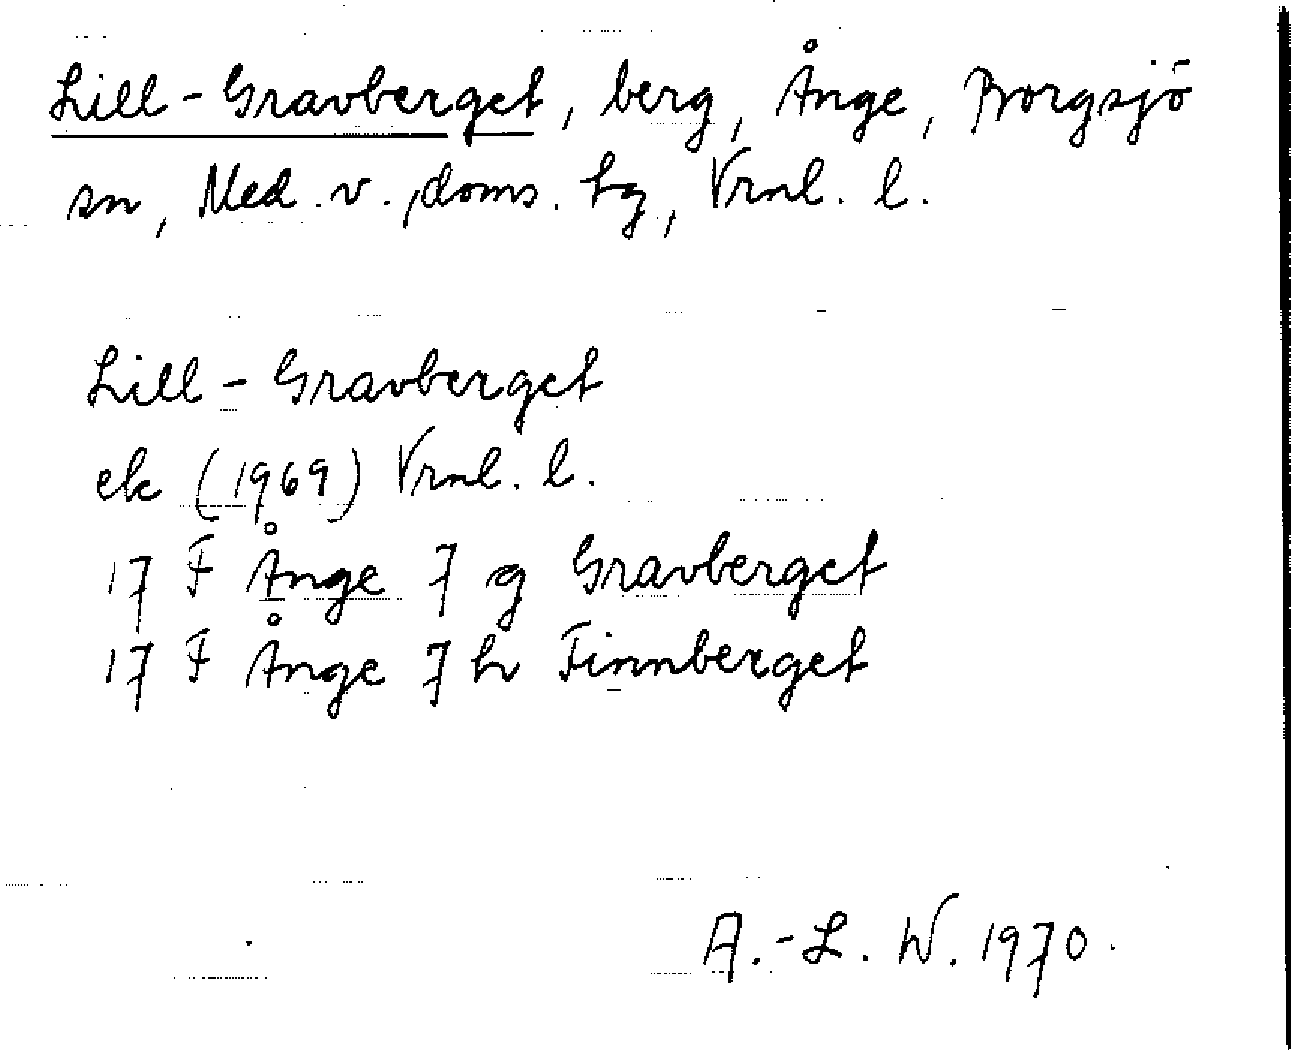 Lill-Gravberget, berg, Ånge, Borgsjö
sn, Med. v., doms. hg, Vrnl. l.
Lill-Gravberget
ek (1969) Vrnl. l.
17 F Ånge 7 g Gravberget
17 F Ånge 7 h Finnberget
A.-L. W. 1970.